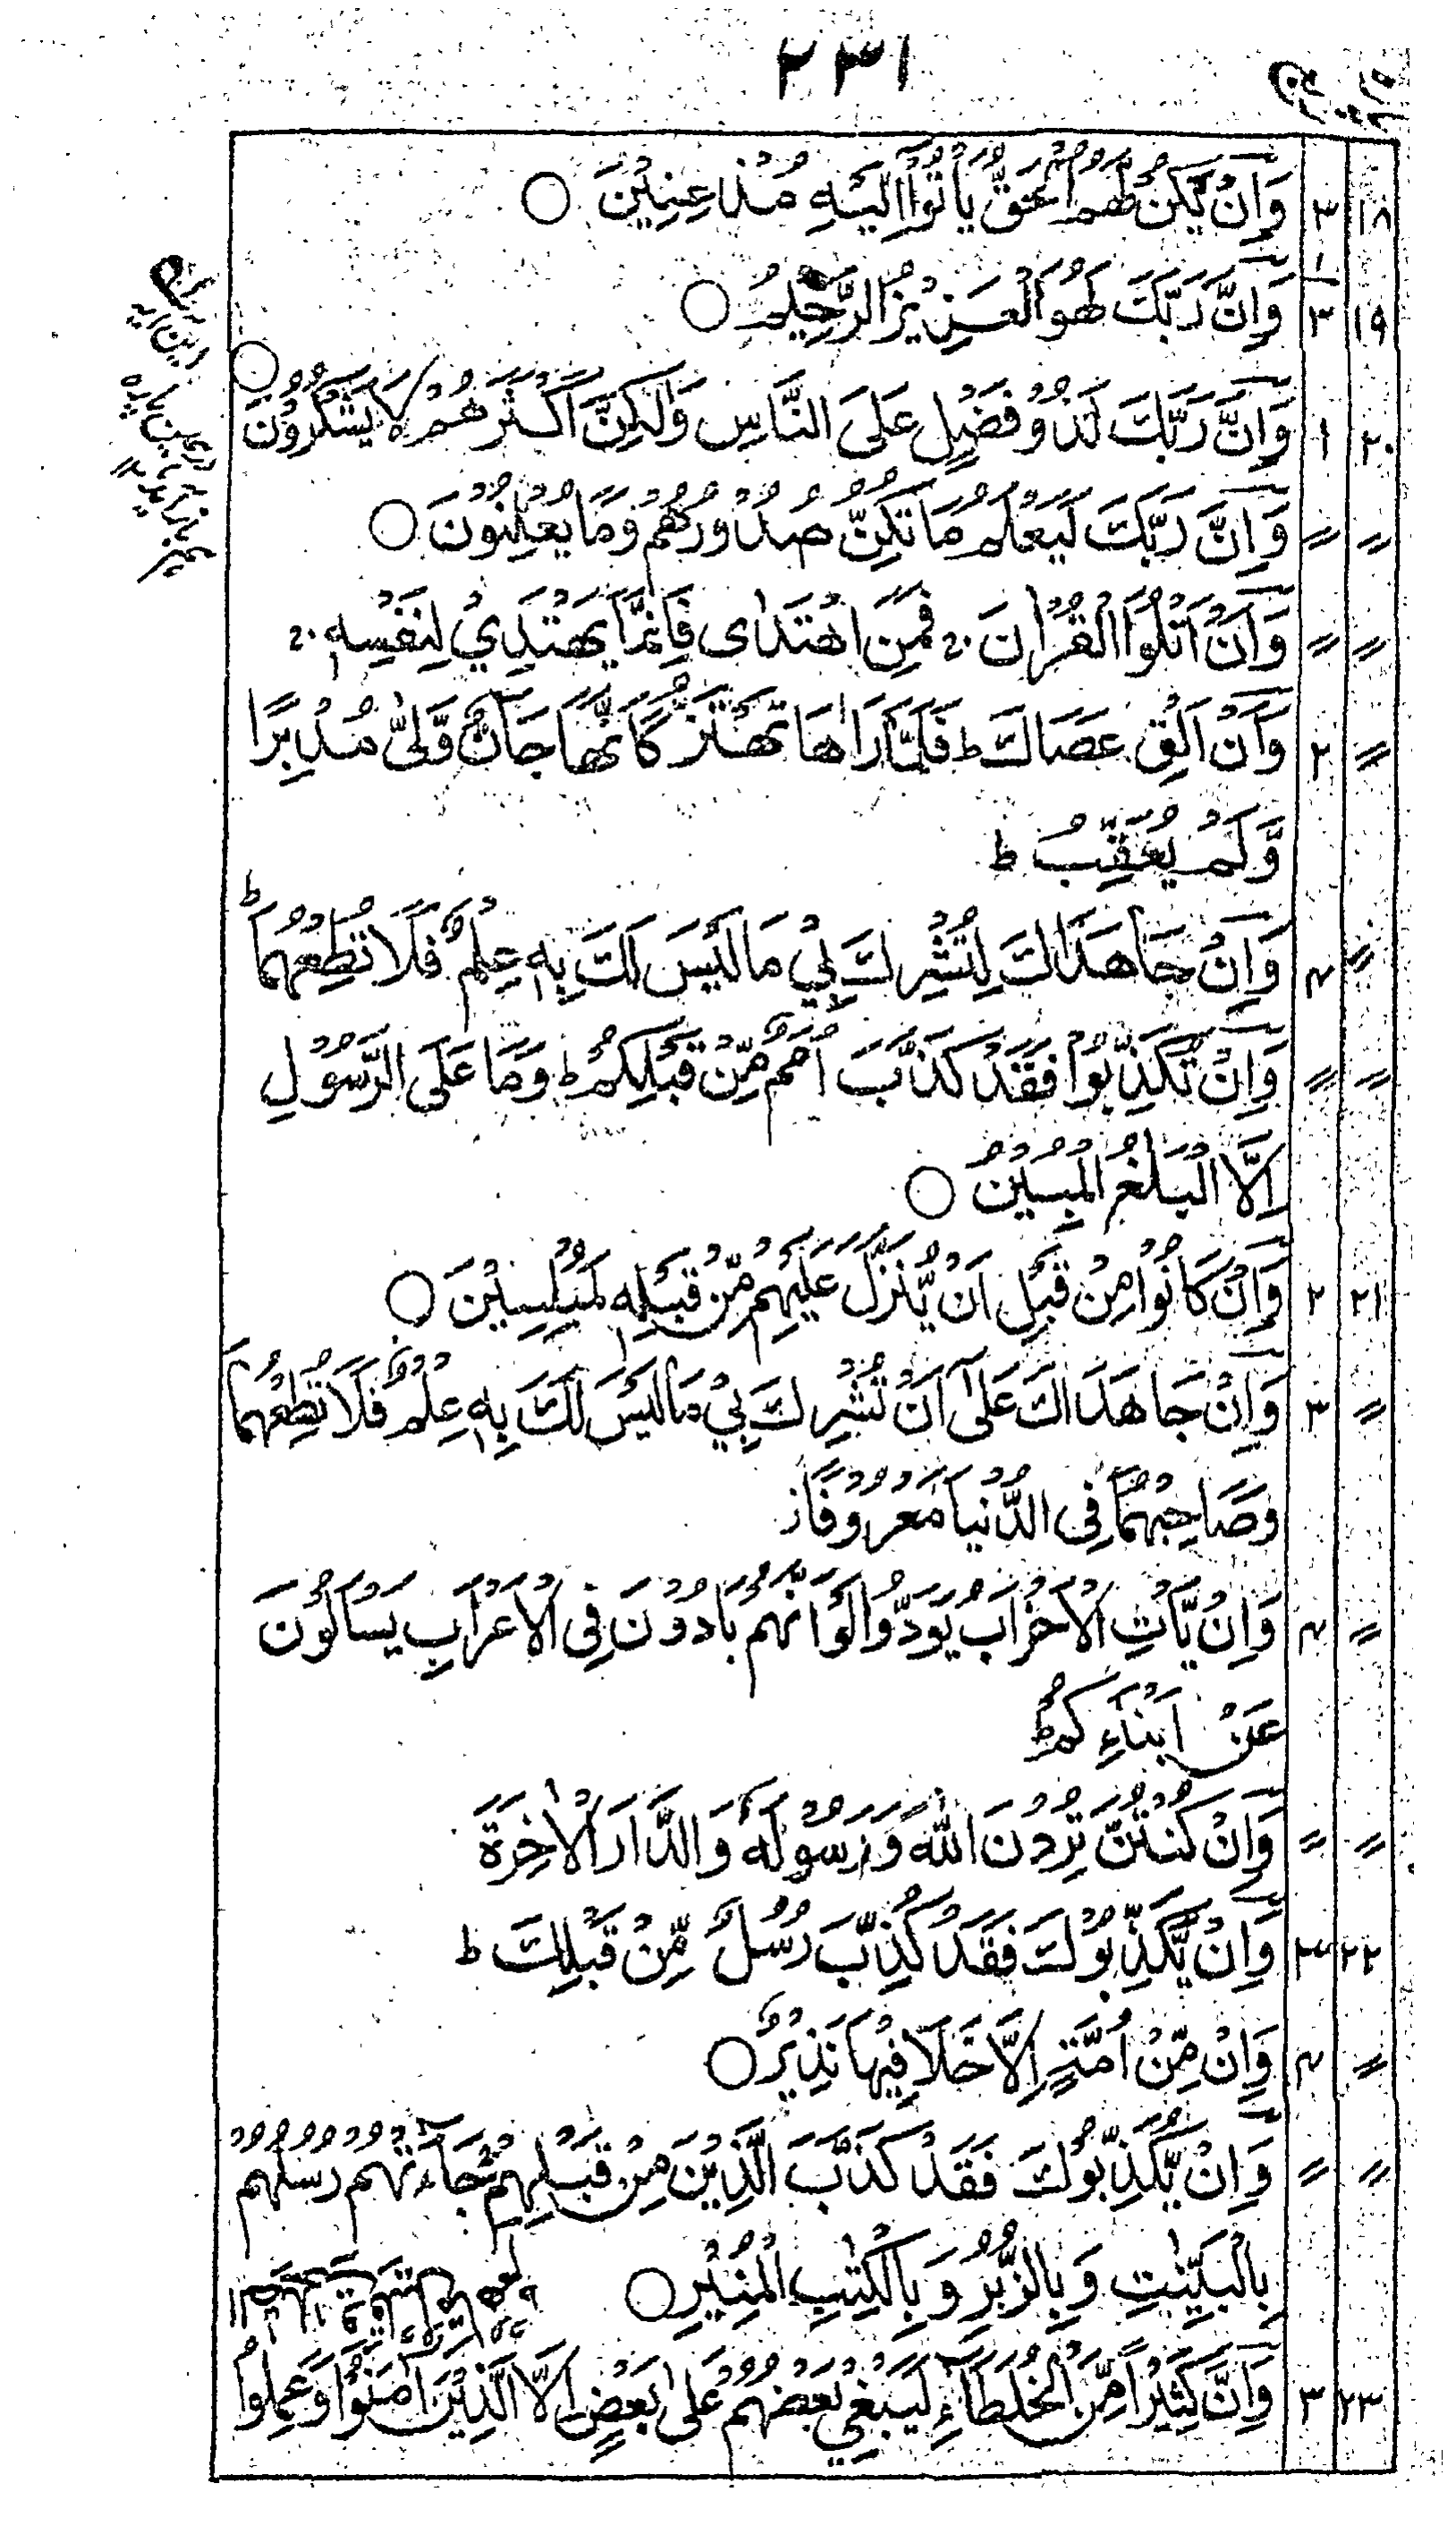 ٢٣١
١٨ ٣ وَاِنْ يَّكُنْ لَّهُمُ الْحَقُّ يَأْتُوْٓا اِلَيْهِ مُذْعِنِيْنَ ○
١٩ ٣ وَاِنَّ رَبَّكَ لَهُوَ الْعَزِيْزُ الرَّحِيْمُ ○
٢٠ ١ وَاِنَّ رَبَّكَ لَذُوْ فَضْلٍ عَلَى النَّاسِ وَلٰكِنَّ اَكْثَرَهُمْ لَا يَشْكُرُوْنَ ○
〃 〃 وَاِنَّ رَبَّكَ لَيَعْلَمُ مَا تُكِنُّ صُدُوْرُهُمْ وَمَا يُعْلِنُوْنَ ○
〃 〃 وَاَنْ اَتْلُوَا الْقُرْاٰنَ ۚ فَمَنِ اهْتَدٰى فَاِنَّمَا يَهْتَدِيْ لِنَفْسِهٖ ۚ
〃 ٢ وَاَنْ اَلْقِ عَصَاكَ ط فَلَمَّا رَاٰهَا تَهْتَزُّ كَاَنَّهَا جَآنٌّ وَّلّٰى مُدْبِرًا
وَّلَمْ يُعَقِّبْ ط
〃 ٤ وَاِنْ جَاهَدٰكَ لِتُشْرِكَ بِيْ مَا لَيْسَ لَكَ بِهٖ عِلْمٌ فَلَا تُطِعْهُمَا ط
〃 〃 وَاِنْ تُكَذِّبُوْا فَقَدْ كَذَّبَ اُمَمٌ مِّنْ قَبْلِكُمْ ط وَمَا عَلَى الرَّسُوْلِ
اِلَّا الْبَلٰغُ الْمُبِيْنُ ○
٢١ ٢ وَاِنْ كَانُوْا مِنْ قَبْلِ اَنْ يُّنَزَّلَ عَلَيْهِمْ مِّنْ قَبْلِهٖ لَمُبْلِسِيْنَ ○
〃 ٣ وَاِنْ جَاهَدَاكَ عَلٰٓى اَنْ تُشْرِكَ بِيْ مَا لَيْسَ لَكَ بِهٖ عِلْمٌ فَلَا تُطِعْهُمَا
وَصَاحِبْهُمَا فِى الدُّنْيَا مَعْرُوْفًا ز
〃 ٤ وَاِنْ يَّاْتِ الْاَحْزَابُ يَوَدُّوْا لَوْ اَنَّهُمْ بَادُوْنَ فِى الْاَعْرَابِ يَسْاَلُوْنَ
عَنْ اَنْبَآءِكُمْ ط
〃 〃 وَاِنْ كُنْتُنَّ تُرِدْنَ اللّٰهَ وَرَسُوْلَهٗ وَالدَّارَ الْاٰخِرَةَ
٢٢ ٣ وَاِنْ يُّكَذِّبُوْكَ فَقَدْ كُذِّبَ رُسُلٌ مِّنْ قَبْلِكَ ط
〃 ٤ وَاِنْ مِّنْ اُمَّةٍ اِلَّا خَلَا فِيْهَا نَذِيْرٌ ○
〃 〃 وَاِنْ يُّكَذِّبُوْكَ فَقَدْ كَذَّبَ الَّذِيْنَ مِنْ قَبْلِهِمْ جَآءَتْهُمْ رُسُلُهُمْ
بِالْبَيِّنٰتِ وَبِالزُّبُرِ وَبِالْكِتٰبِ الْمُنِيْرِ ○
٢٣ ٣ وَاِنَّ كَثِيْرًا مِّنَ الْخُلَطَآءِ لَيَبْغِيْ بَعْضُهُمْ عَلٰى بَعْضٍ اِلَّا الَّذِيْنَ اٰمَنُوْا وَعَمِلُوا